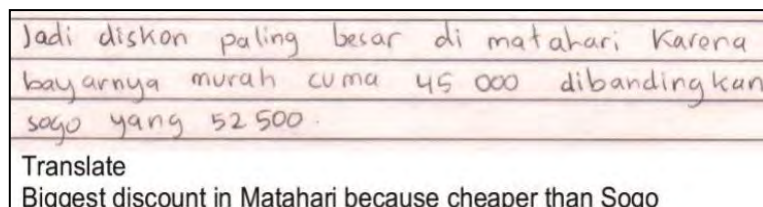 Jadi diskon paling besar di matahari Karena
bayarnya murah cuma 45 000 dibandingkan
sogo yang 52 500.
Translate
Biggest discount in Matahari because cheaper than Sogo